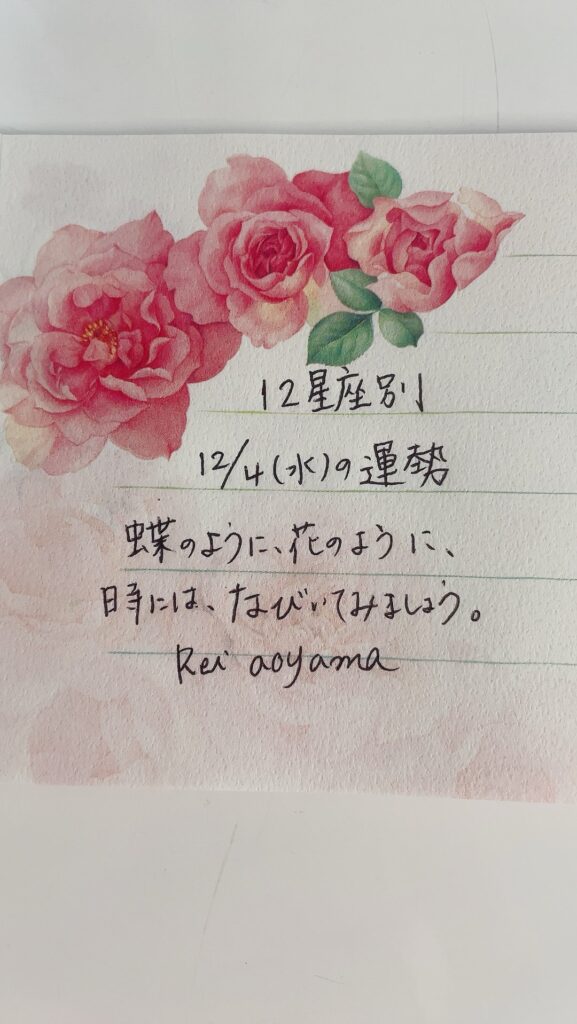 12星座別
12/4(水)の運勢
蝶のように、花のように、
時には、なびいてみましょう。
Rei aoyama